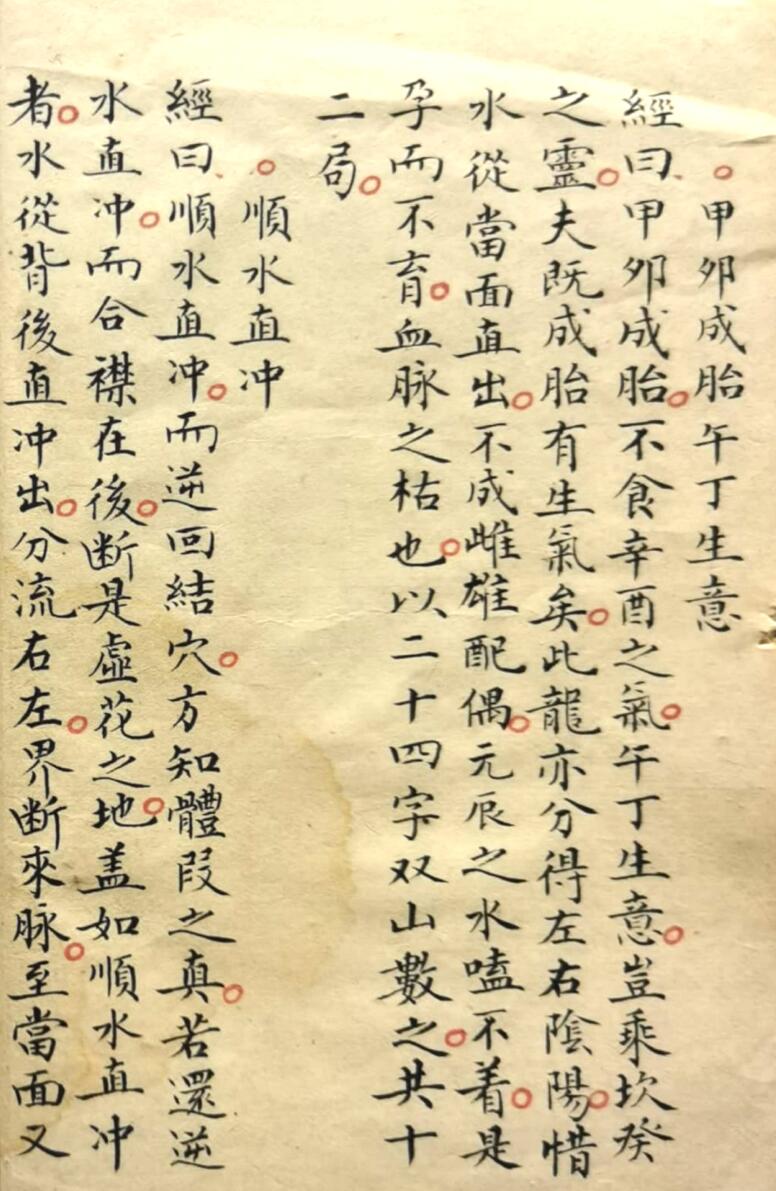 。甲卯成胎午丁生意
經曰甲卯成胎。不食辛酉之氣。午丁生意。豈乘坎癸
之靈。夫既成胎有生氣矣。此龍亦分得左右陰陽。惜
水從當面直出。不成雌雄配偶。元辰之水嗑不着。是
孕而不育。血脉之枯也。以二十四字双山數之。共十
二局。
。順水直冲
經曰順水直冲。而逆回結穴。方知體段之真。若還逆
水直冲。而合襟在後。断是虛花之地。盖如順水直冲
者。水從背後直冲出。分流右左。界断來脉。至當面又